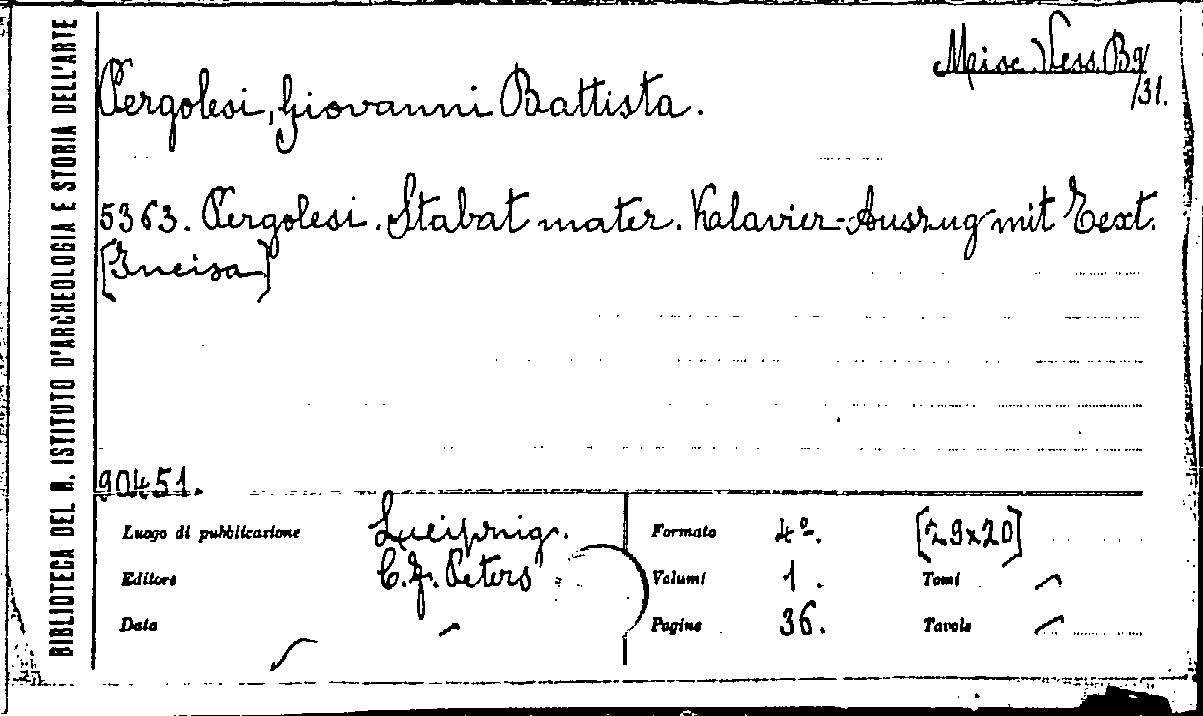 BIBLIOTECA DEL R. ISTITUTO D'ARCHEOLOGIA E STORIA DELL'ARTE
Misc. Vess. B9/31.
Pergolesi, Giovanni Battista.
5363. Pergolesi. Stabat mater. Kalavier-Auszug mit Text.
[Incisa]
90451.
Luogo di pubblicazione Lucipnig.
Editore C. F. Peters
Data —
Formato 4º. [29x20]
Volumi 1. Tomi —
Pagine 36. Tavole —